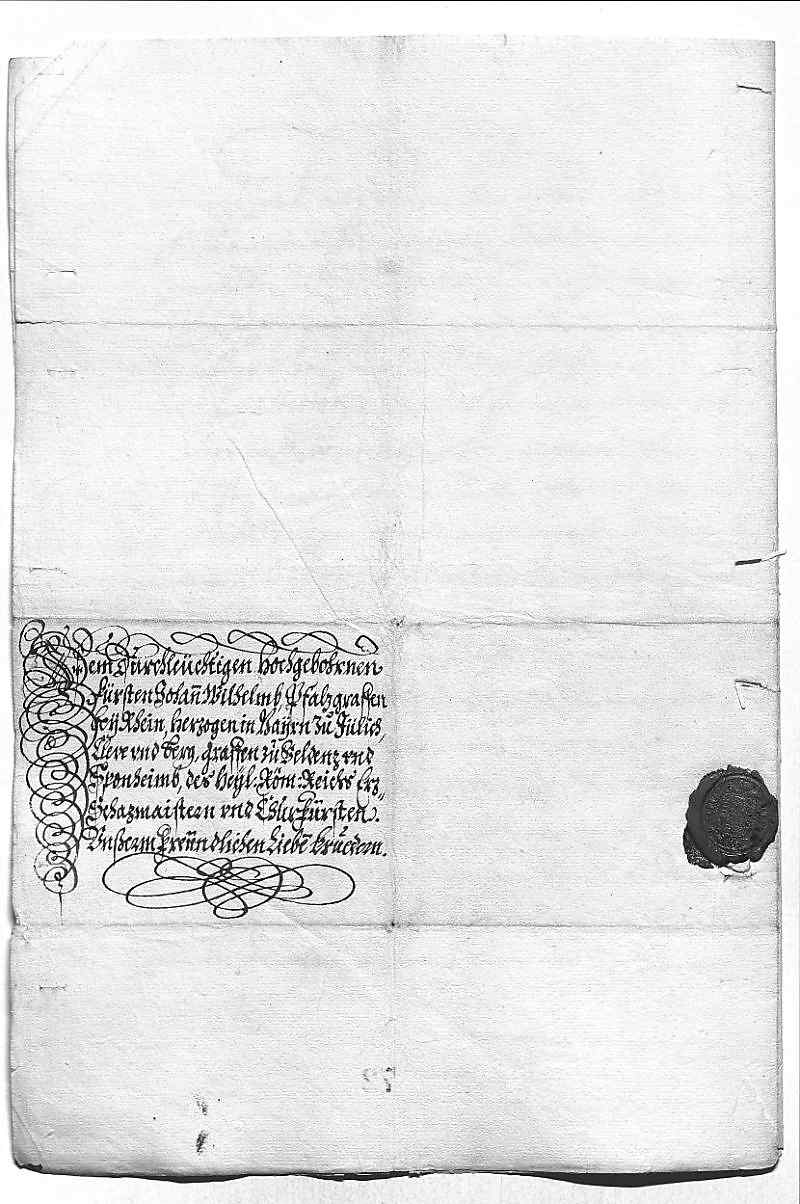 Dem Durchleüchtigen Hochgebohrnen
Fürsten Johañ Wilhelmb Pfalzgraffen
bey Rhein, Herzogen in Bayrn zu Jülich,
Cleve vnd Berg, Graffen zu Veldenz vnd
Sponheimb, des Heyl: Röm: Reichs Erz=
Schazmaistern vnd Churfürsten.
Vnßerm freündlichen Liebē Bruedern.